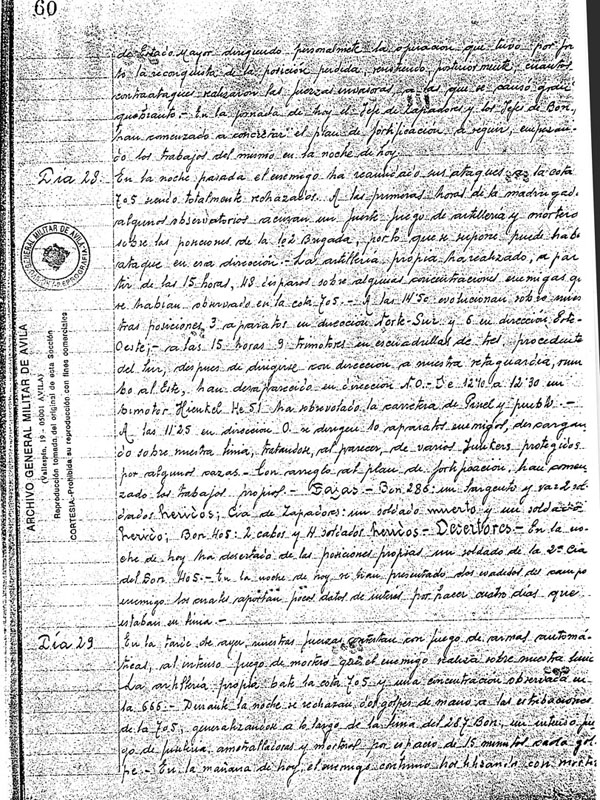 60
de Estado Mayor dirigiendo personalmente la operación que tuvo por
to la reconquista de la posición perdida, resistiendo, posteriormente, cuantos
contraataques realizaron las fuerzas invasoras, a las que se causó gran
quebranto.- En la jornada de hoy el Jefe de Zapadores y los Jefes de Bon.
han comenzado a concretar el plan de fortificación a seguir, empezan-
do los trabajos del mismo en la noche de hoy.
Día 28.- En la noche pasada el enemigo ha reanudado sus ataques a la cota
705 siendo totalmente rechazados. A las primeras horas de la madrugada
algunos observatorios acusan un fuerte fuego de artillería y mortero
sobre las posiciones de la 102 Brigada, por lo que se supone puede haber
ataque en esa dirección.- La artillería propia ha realizado, a par-
tir de las 15 horas, 118 disparos sobre algunas concentraciones enemigas q
se habían observado en la cota 705.- A las 14'50 evolucionan sobre nues-
tras posiciones, 3 aparatos en dirección Norte-Sur y 6 en dirección Este-
Oeste;- a las 15 horas 9 trimotores en escuadrillas de tres, procedentes
del Sur, despues de dirigirse con dirección a nuestra retaguardia, rum-
bo al Este, han desaparecido en dirección N.O.- De 12'10 a 12'30 un
bimotor Hienkel He 51 ha sobrevolado la carretera de y pueblo.-
A las 11'25 en dirección O. se dirigen 10 aparatos enemigos, descargan-
do sobre nuestra línea, tratándose, al parecer, de varios Junkers protegidos
por algunos cazas.- Con arreglo al plan de fortificación, han comen-
zado los trabajos propios.- Bajas.- Bon. 286: un sargento y sol-
dados heridos; Cia de Zapadores: un soldado muerto y un soldado
herido; Bon. 405: 2 cabos y 4 soldados heridos.- Desertores.- En la no-
che de hoy ha desertado de las posiciones propias un soldado de la 2ª Cia
del Bon. 405.- En la noche de hoy se han presentado dos evadidos del campo
enemigo los cuales aportan pocos datos de interes por hacer cuatro días que
estaban en línea.-
Día 29 En la tarde de ayer, nuestras fuerzas contestan con fuego de armas automá-
ticas, al intenso fuego de mortero que el enemigo realiza sobre nuestra línea
La artillería propia bate la cota 705 y una concentración observada en
la 666.- Durante la noche se rechazan dos golpes de mano a las estribaciones
de la 705, generalizandose a lo largo de la línea del 287 Bon., un intenso fue-
go de fusilería, ametralladoras y morteros por espacio de 15 minutos cada gol-
pe.- En la mañana de hoy, el enemigo continúa hostilizando con
GENERAL MILITAR DE AVILA
ARCHIVO GENERAL MILITAR DE AVILA
(Vallespín, 19 - 05001 AVILA)
Reproducción tomada del original de esta Sección
CORTESIA.-Prohibida su reproducción con fines comerciales